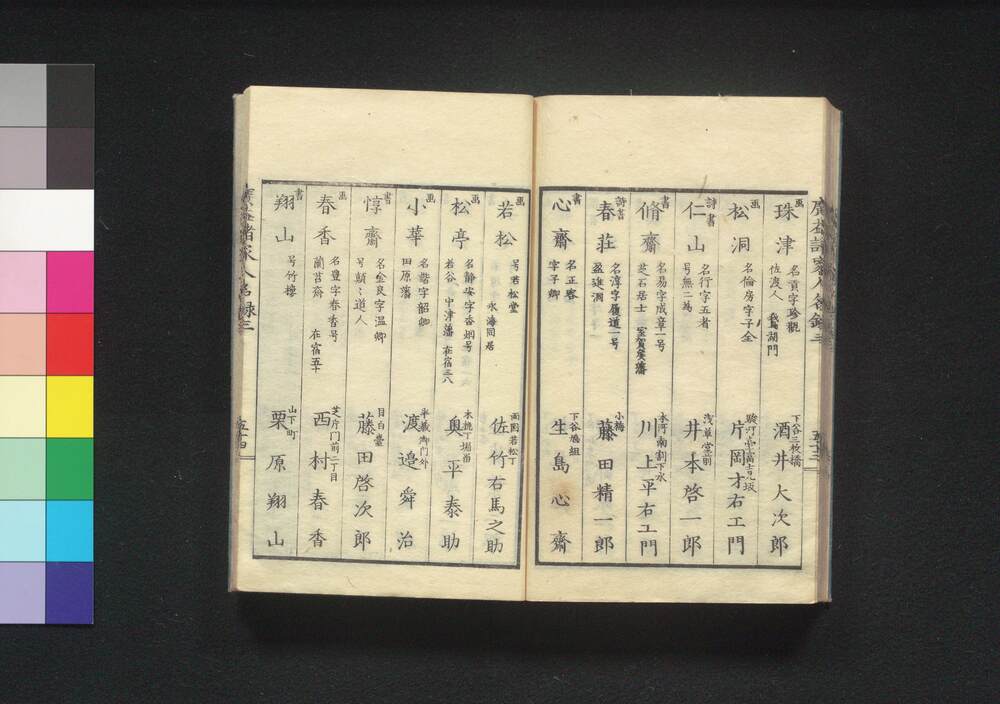 画
珠津
名貢字珍觀
佐渡人 鵞湖門
下谷三枚橋
酒井大次郎
画
松洞
名倫房字子全
駿河臺富士見坂
片岡才右工門
詩書
仁山
名行字五者
号無二為
浅草堂前
井本啓一郎
書
脩齋
名易字成章一号
芝石居士
本所南割下水
川上平右工門
詩書
春荘
名淳字履道一号
小梅
藤田精一郎
書
心齋
名正容
字子人
下谷鳩組
生島心齋
五十三
画
若松
号君松堂
永海同居
両国若松丁
佐竹右馬之助
画
松亭
名静安字香
若谷 中津藩
木挽丁
奥平泰助
画
小華
名諧字韶卿
田原藩
半蔵御門外
渡邉舜治
書
惇齋
名金良字温卿
号顛々道人
目白臺
藤田啓次郎
画
春香
名豊字春香号
蘭苔齋
芝片門前二丁目
西村春香
書
翔山
号竹樓
山下町
栗原翔山
五十四